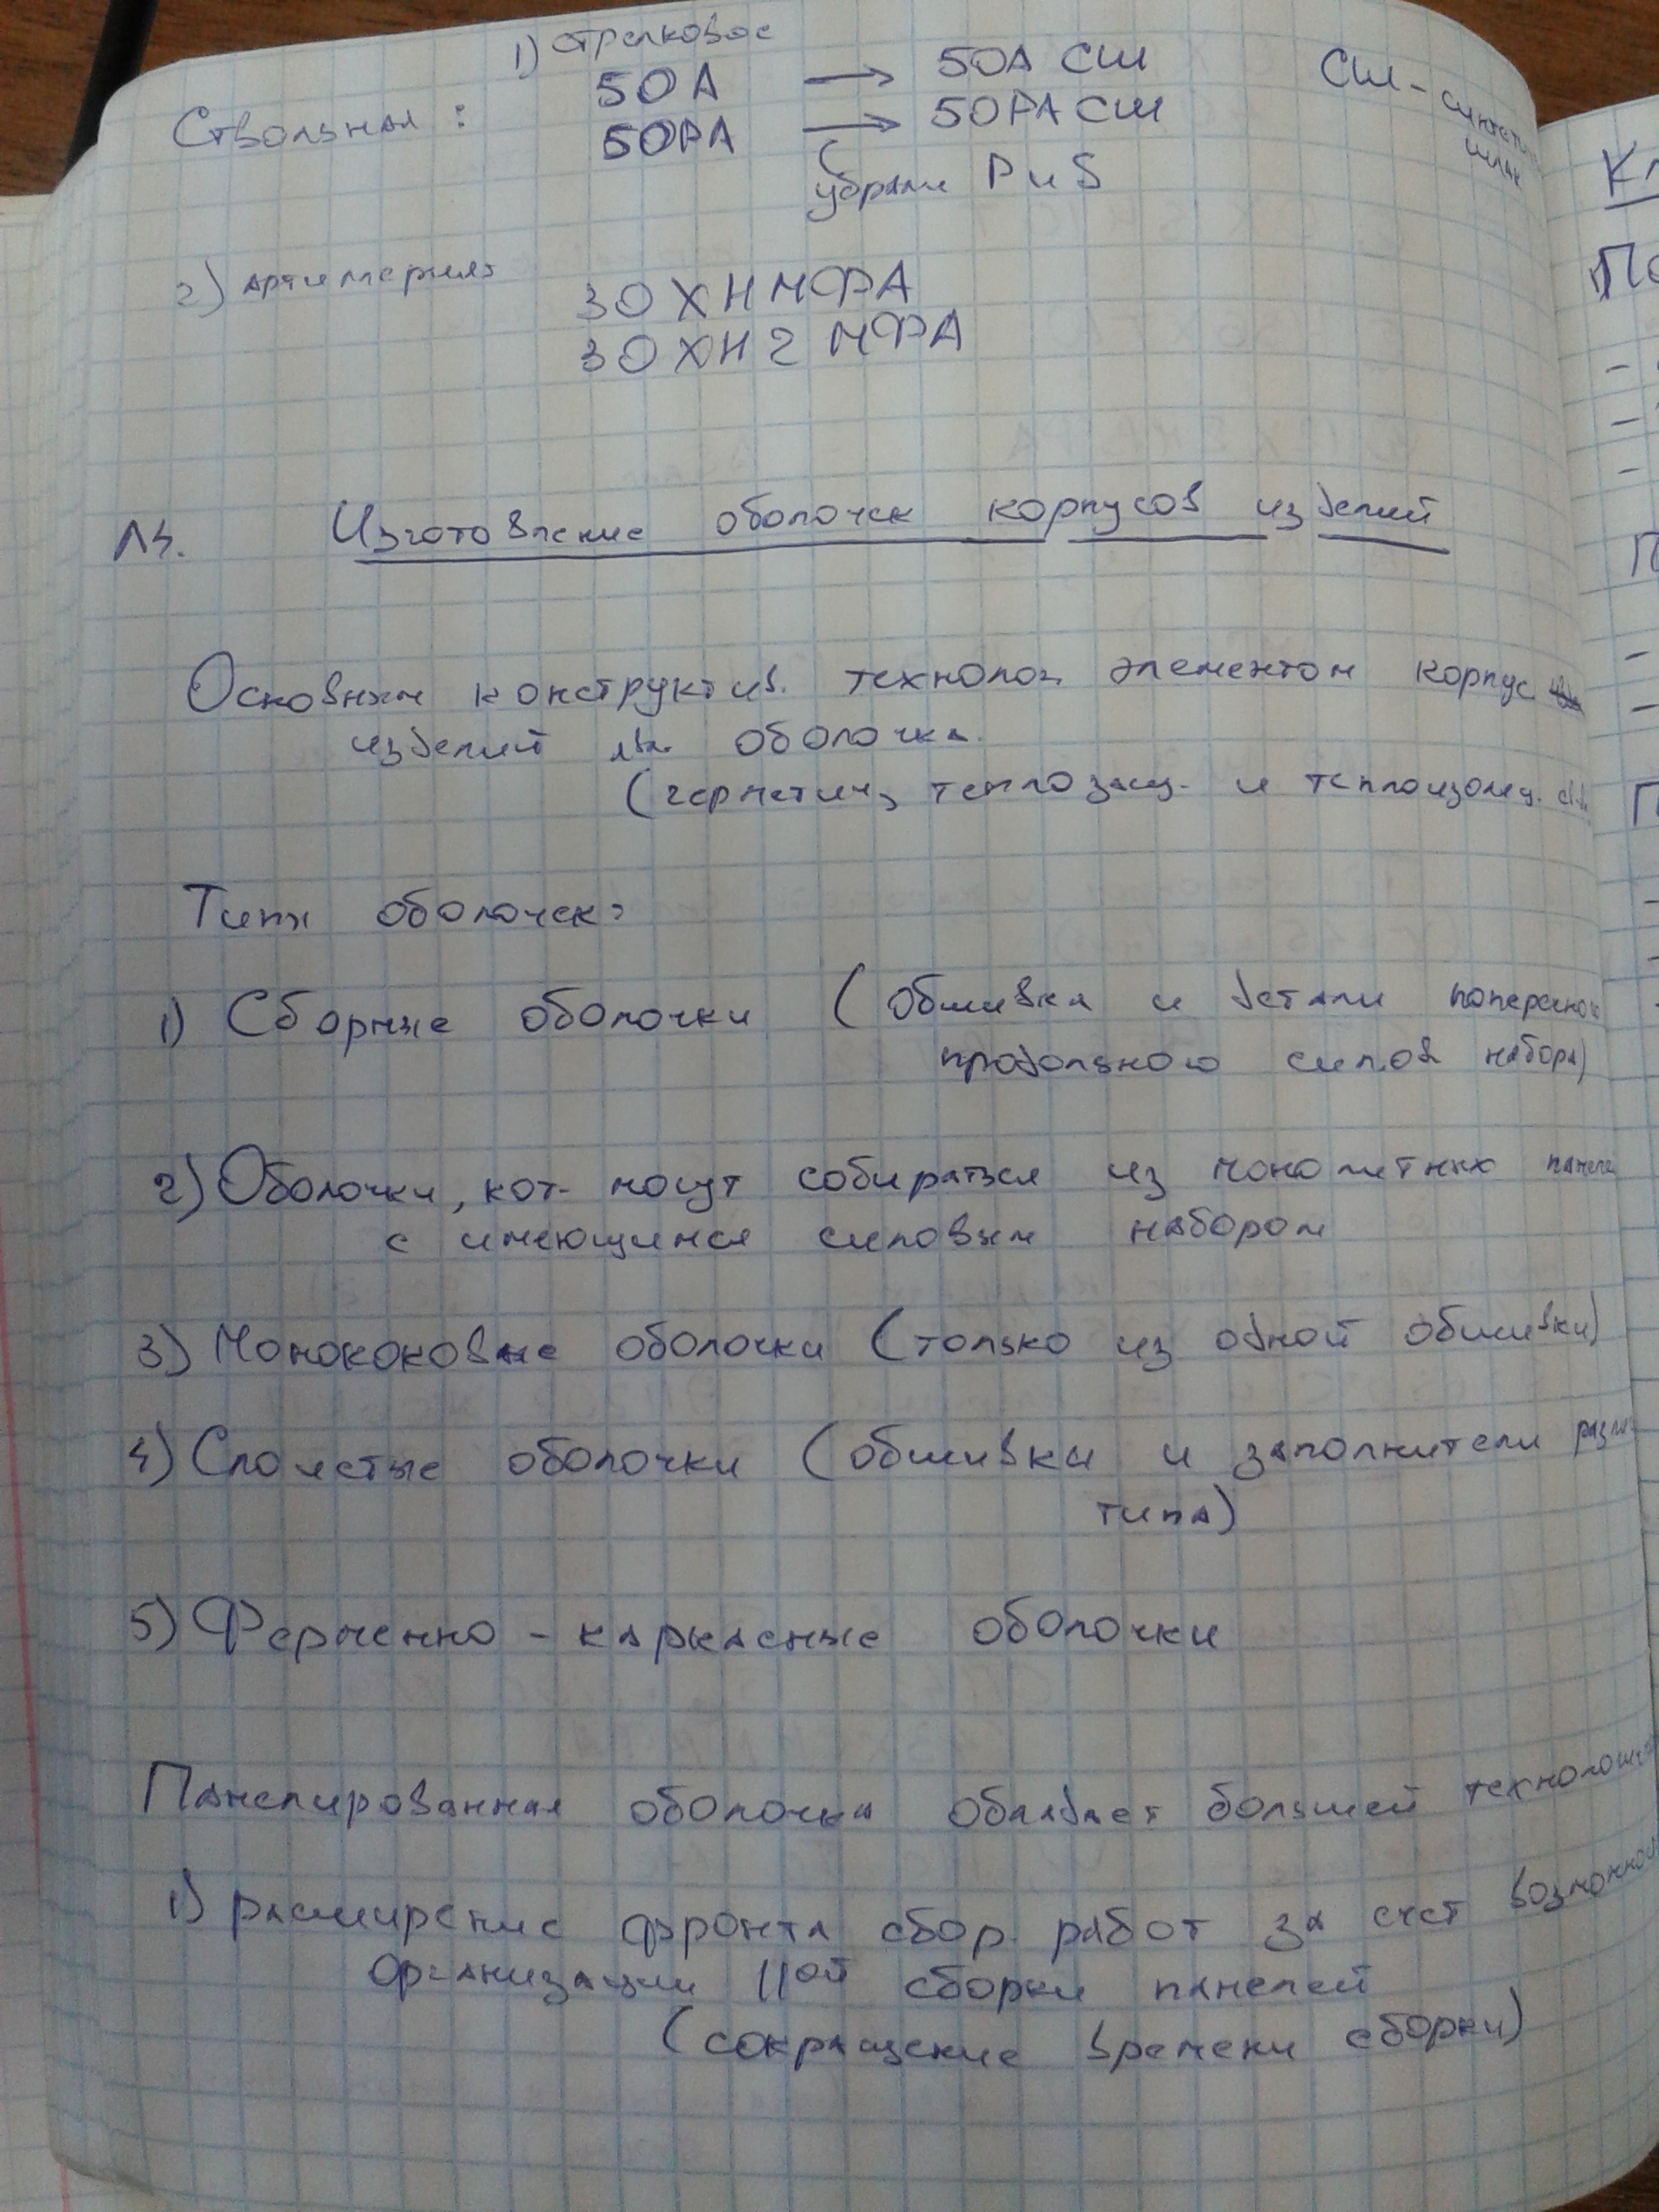 1) стрелковое
Ствольная : 50А → 50А СШ
50РА → 50РА СШ
убрали P и S
СШ - синтети
шлак
2) артиллерият
30ХНМФА
30ХН2МФА
Л4. Изготовление оболочек корпусов изделий
Основным конструктив. технолог. элементом корпус
изделий явл. оболочка.
(герметич, теплозащ. и теплоизоляц. св-ва
Типы оболочек:
1) Сборные оболочки (обшивка и детали поперечно
продольного силов набора)
2) Оболочки, кот. могут собираться из монолитных панеле
с имеющимся силовым набором
3) Монококовые оболочки (только из одной обшивки)
4) Слоистые оболочки (обшивки и заполнители разл
типа)
5) Ферменно - каркасные оболочки
Панелированная оболочка обладает большей технологи
1) расширение фронта сбор. работ за счет возможно
организации ||ой сборки панелей
(сокращение времени сборки)
Кл